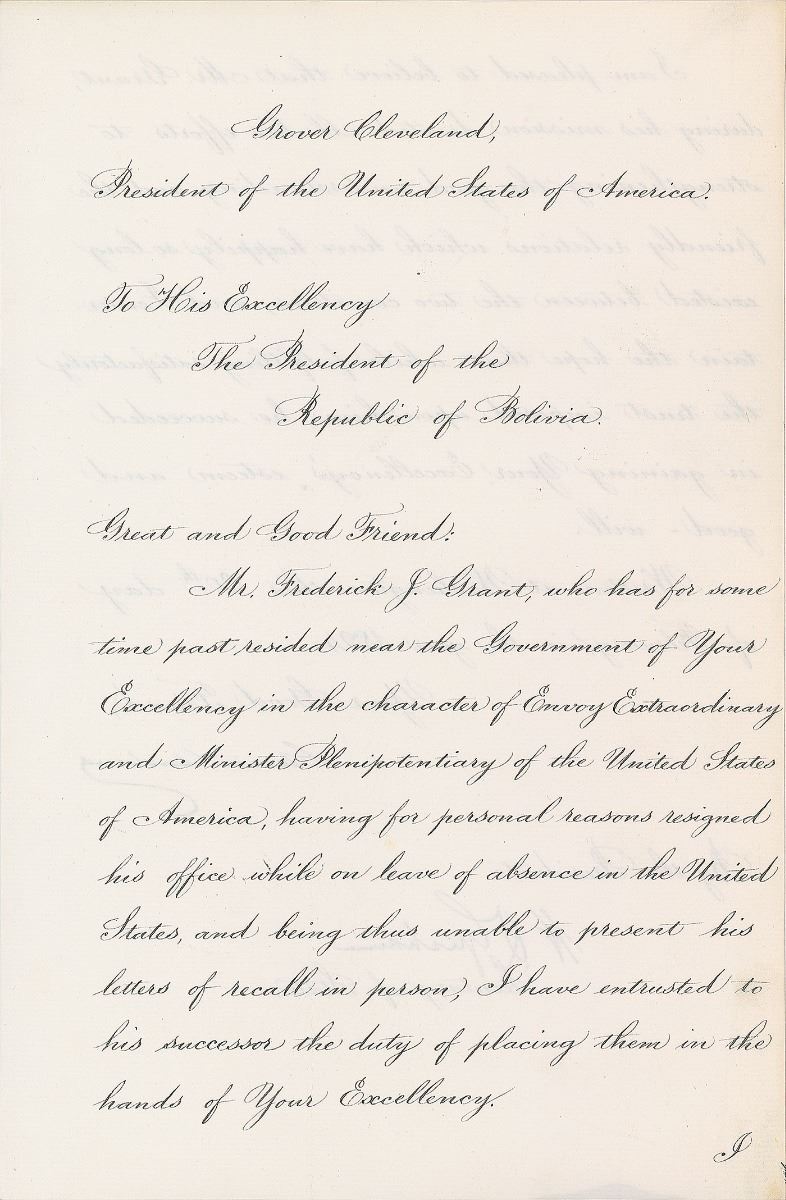 Grover Cleveland,
President of the United States of America.
To His Excellency
The President of the
Republic of Bolivia.
Great and Good Friend:
Mr. Frederick J. Grant, who has for some
time past resided near the Government of Your
Excellency in the character of Envoy Extraordinary
and Minister Plenipotentiary of the United States
of America, having for personal reasons resigned
his office while on leave of absence in the United
States, and being thus unable to present his
letters of recall in person, I have entrusted to
his successor the duty of placing them in the
hands of Your Excellency.
I